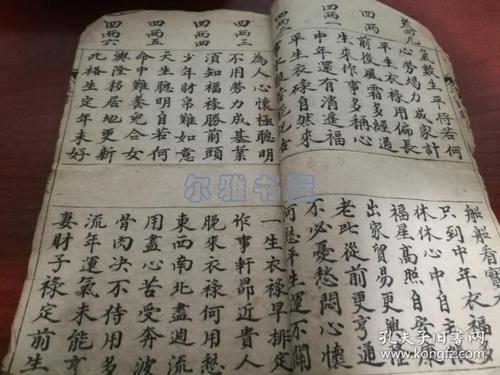 氣數生平将若何
心勞竭力成家計
四兩
平生衣祿用偏長
前後風霜多經過
四兩一
生來作事多稱心
中年還自消進福
平生衣碌自然來
四兩三
為人心懷極聰明
不用勞力成基業
四兩四
須知福祿勝前頭
少年財帛難如意
四兩五
天生聰明自若何
命中難養兒合女
四兩六
興隆移居地更新
此格生定年未好
船般看寶
只到中年衣祿
休休心中自主張
福星高照自安康
出家貿易更興隆
老此從前更亨通
不必憂愁悶心懷
何愁平生運不關
一生衣祿早排定
作事軒昂近貴人
脱來衣祿何用愁
東西南北盡週流
用盡心苦受奔波
骨肉决不待用多
流年運氣未能亨
妻財子祿定前生
尔雅书屋
孔夫子旧书网
www.kongfz.com